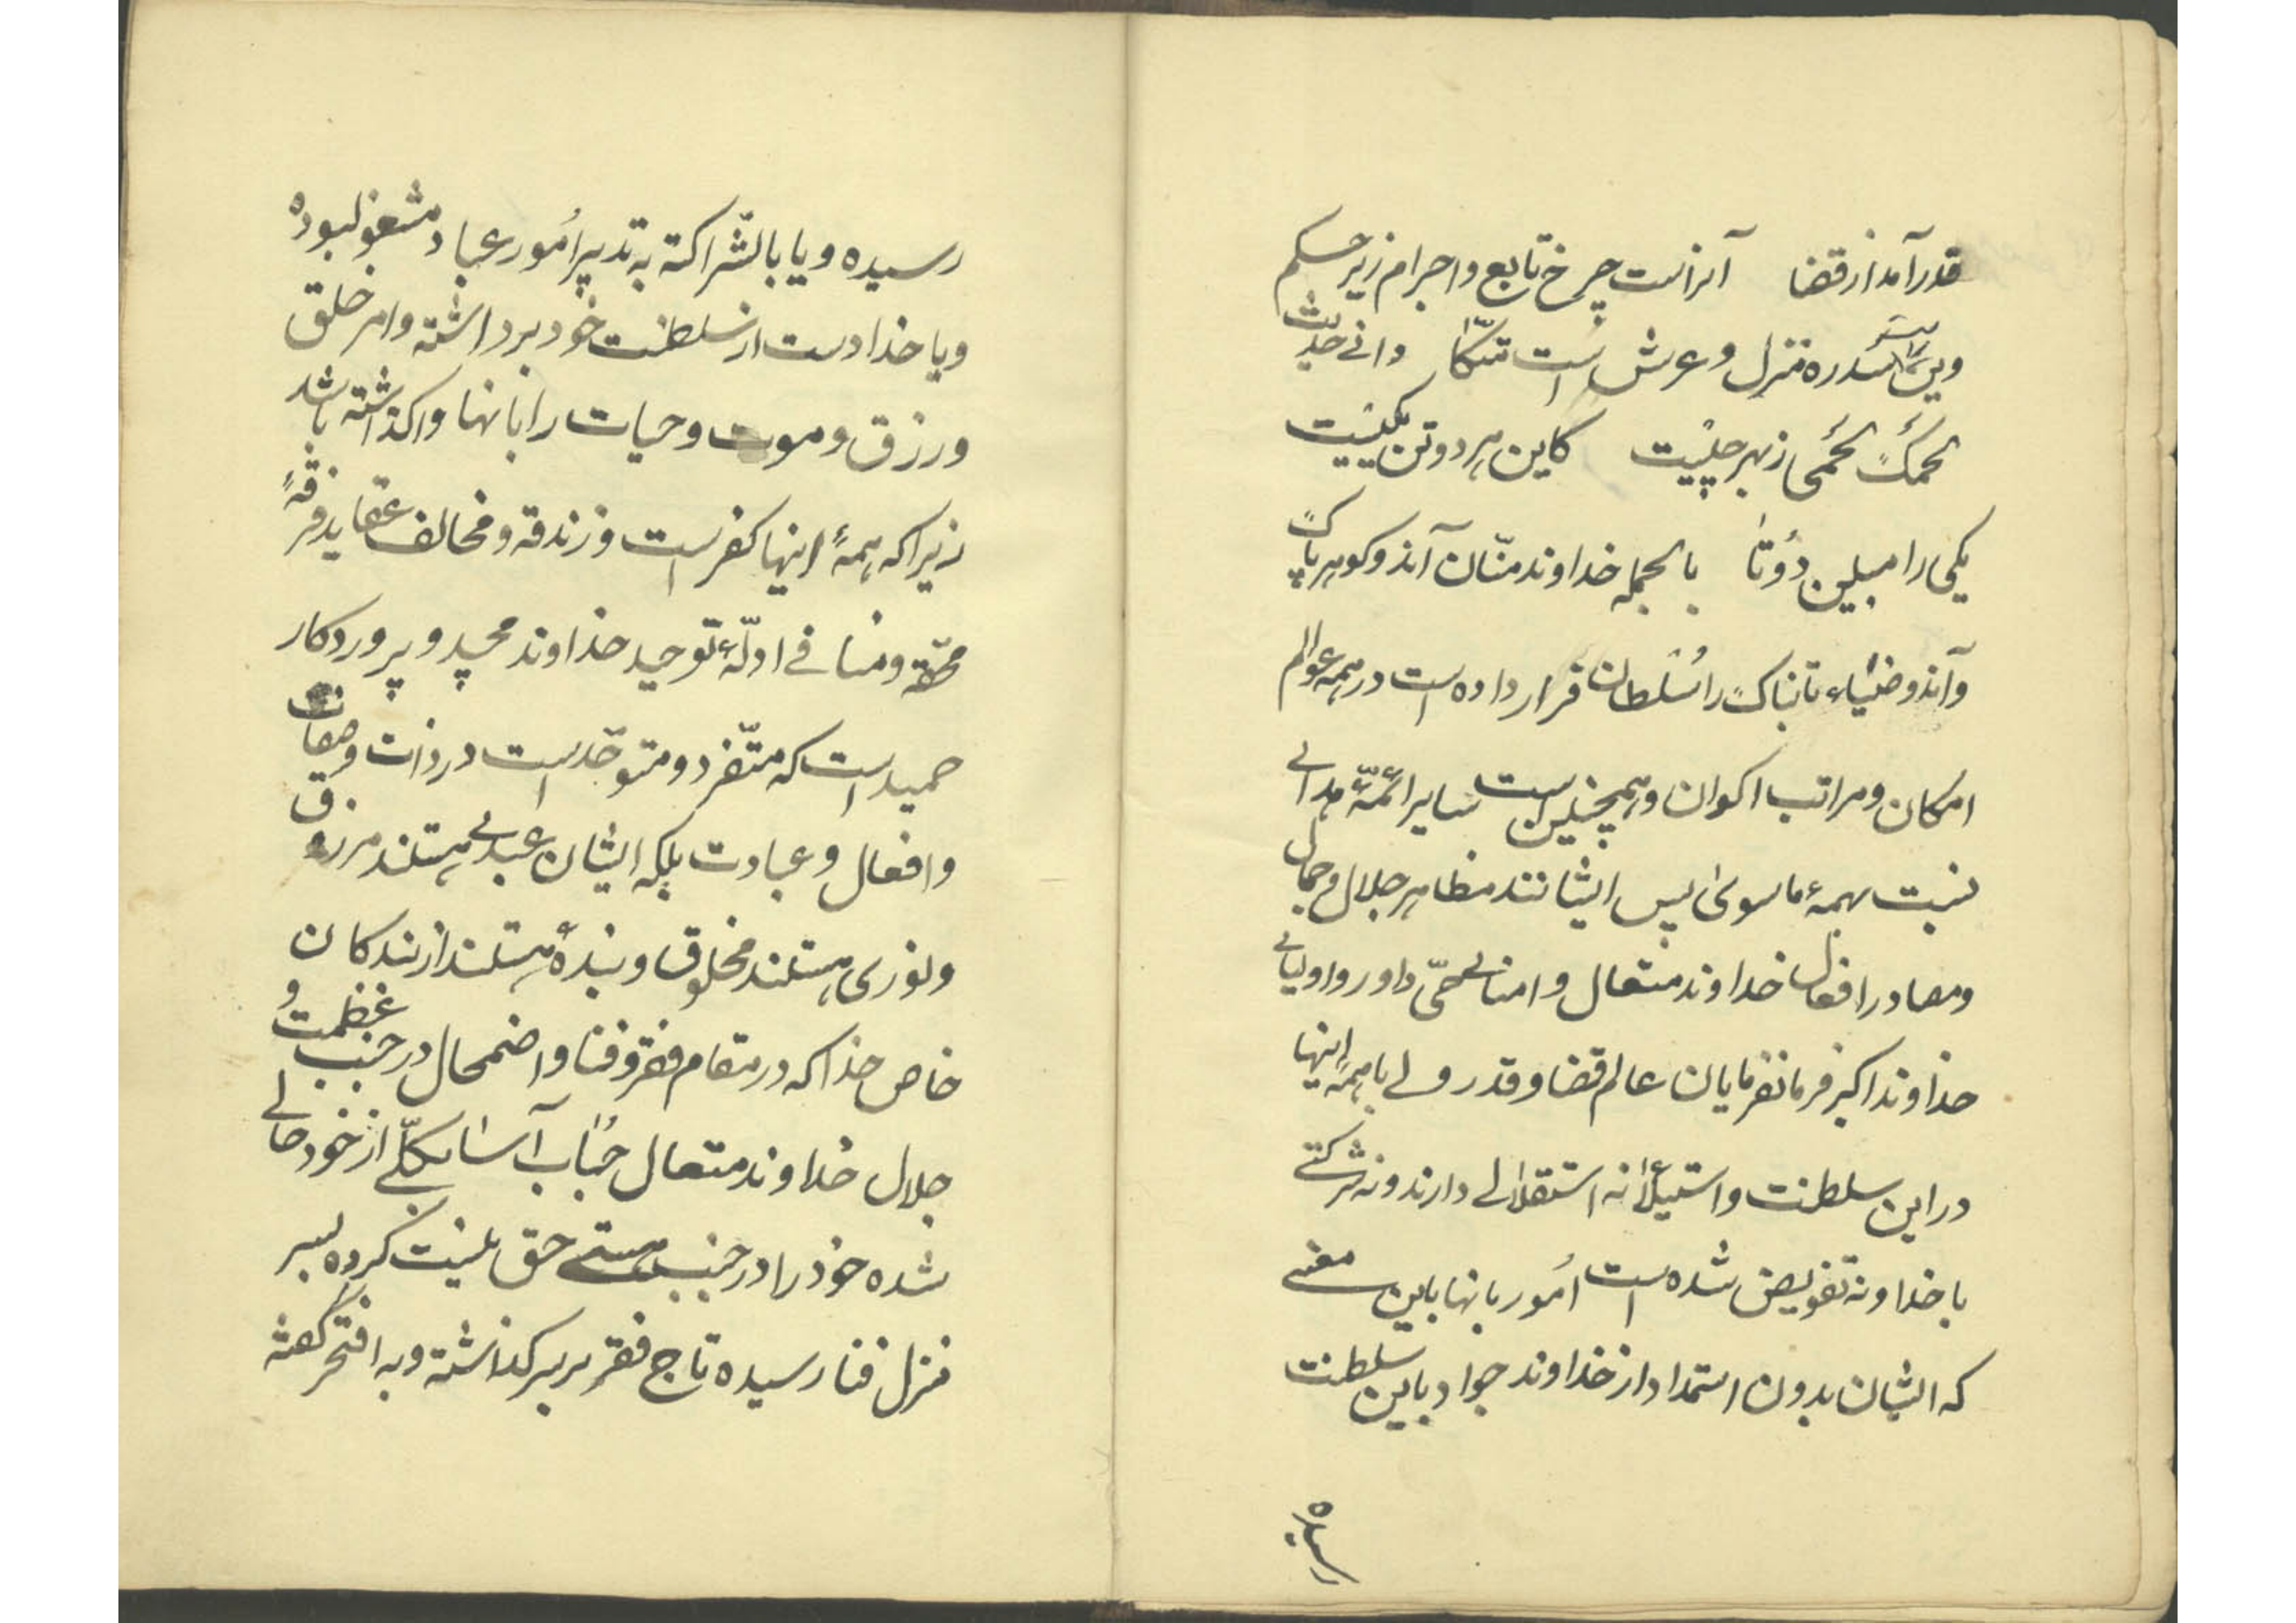 قدر آمد از قضا آنراست چرخ تابع و اجرام زیر حکم
وین راست سدره منزل و عرش است متّکا وانی حدیث
لحمک لحمی ز بهر چیست کاین هر دو تن یکیست
یکی را مبین دوتا بالجمله خداوند منّان آندو گوهر پاک
و آندو ضیاء تابناک را سلطان قرار داده است در همه عوالم
امکان و مراتب اکوان و همچنین است سایر ائمّهٔ هدای
نسبت بهمهٔ ماسوی پس ایشانند مظاهر جلال و جمال
و مصادر افعال خداوند متعال و امنای حیّ داور و اولیای
خداوند اکبر فرمانفرمایان عالم قضا و قدر ولی با همهٔ اینها
در این سلطنت و استیلا نه استقلالی دارند و نه شرکتی
با خدا و نه تفویض شده است امور بانها باین معنی
که ایشان بدون استمداد از خداوند جواد باین سلطنت
رسیده
رسیده و یا بالشّراکة به تدبیر اُمور عباد مشغول بوده
و یا خدا دست از سلطنت خود برداشته و امر خلق
و رزق و موت و حیات را بانها واگذاشته باشد
زیرا که همهٔ اینها کفر است و زندقه و مخالف عقاید فرقهٔ
محقّه و منافی ادلّهٔ توحید خداوند مجید و پروردکار
حمید است که متفّرد و متوحّد است در ذات و صفات
و افعال و عبادت بلکه ایشان عبدی هستند مرزوق
و نوری هستند مخلوق و بندهٔ هستند از بندکان
خاص خدا که در مقام فقر و فنا و اضمحلال در جنب عظمت و
جلال خداوند متعال حُباب آسا بکلّی از خود خالی
شده خود را در جنب هستی حق نیست کرده بسر
منزل فنا رسیده تاج فقر بر سر کذاشته و به افتخر کفته